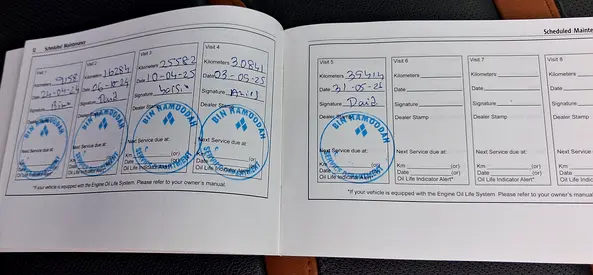 52 Scheduled Maintenance
Visit 1
Kilometers 9158
Date 24-04-24
Signature
Dealer Stamp
BIN HAMOODAH
SERVICE DEPARTMENT
Next Service due at:
Date (or)
Oil Life Indicator Alert*
Visit 2
Kilometers 16284
Date 06-10-24
Signature
Dealer Stamp
BIN HAMOODAH
SERVICE DEPARTMENT
Next Service due at:
Km (or)
Date (or)
Oil Life Indicator Alert*
Visit 3
Kilometers 25582
Date 10-04-25
Signature
Dealer Stamp
BIN HAMOODAH
SERVICE DEPARTMENT
Next Service due at:
Km (or)
Date (or)
Oil Life Indicator Alert*
Visit 4
Kilometers 30841
Date 03-09-25
Signature
Dealer Stamp
BIN HAMOODAH
SERVICE DEPARTMENT
Next Service due at:
Km (or)
Date (or)
Oil Life Indicator Alert*
*If your vehicle is equipped with the Engine Oil Life System. Please refer to your owner's manual.
Scheduled Mainte
Visit 5
Kilometers 39414
Date 31-05-26
Signature
Dealer Stamp
BIN HAMOODAH
SERVICE DEPARTMENT
Next Service due at:
Km (or)
Date (or)
Oil Life Indicator Alert*
Visit 6
Kilometers
Date
Signature
Dealer Stamp
Next Service due at:
Km (or)
Date (or)
Oil Life Indicator Alert*
Visit 7
Kilometers
Date
Signature
Dealer Stamp
Next Service due at:
Km (or)
Date (or)
Oil Life Indicator Alert*
Visit 8
Kilometers
Date
Signature
Dealer Stamp
Next Service due
Km
Date
Oil Life Indica
*If your vehicle is equipped with the Engine Oil Life System. Please refer to your owner's